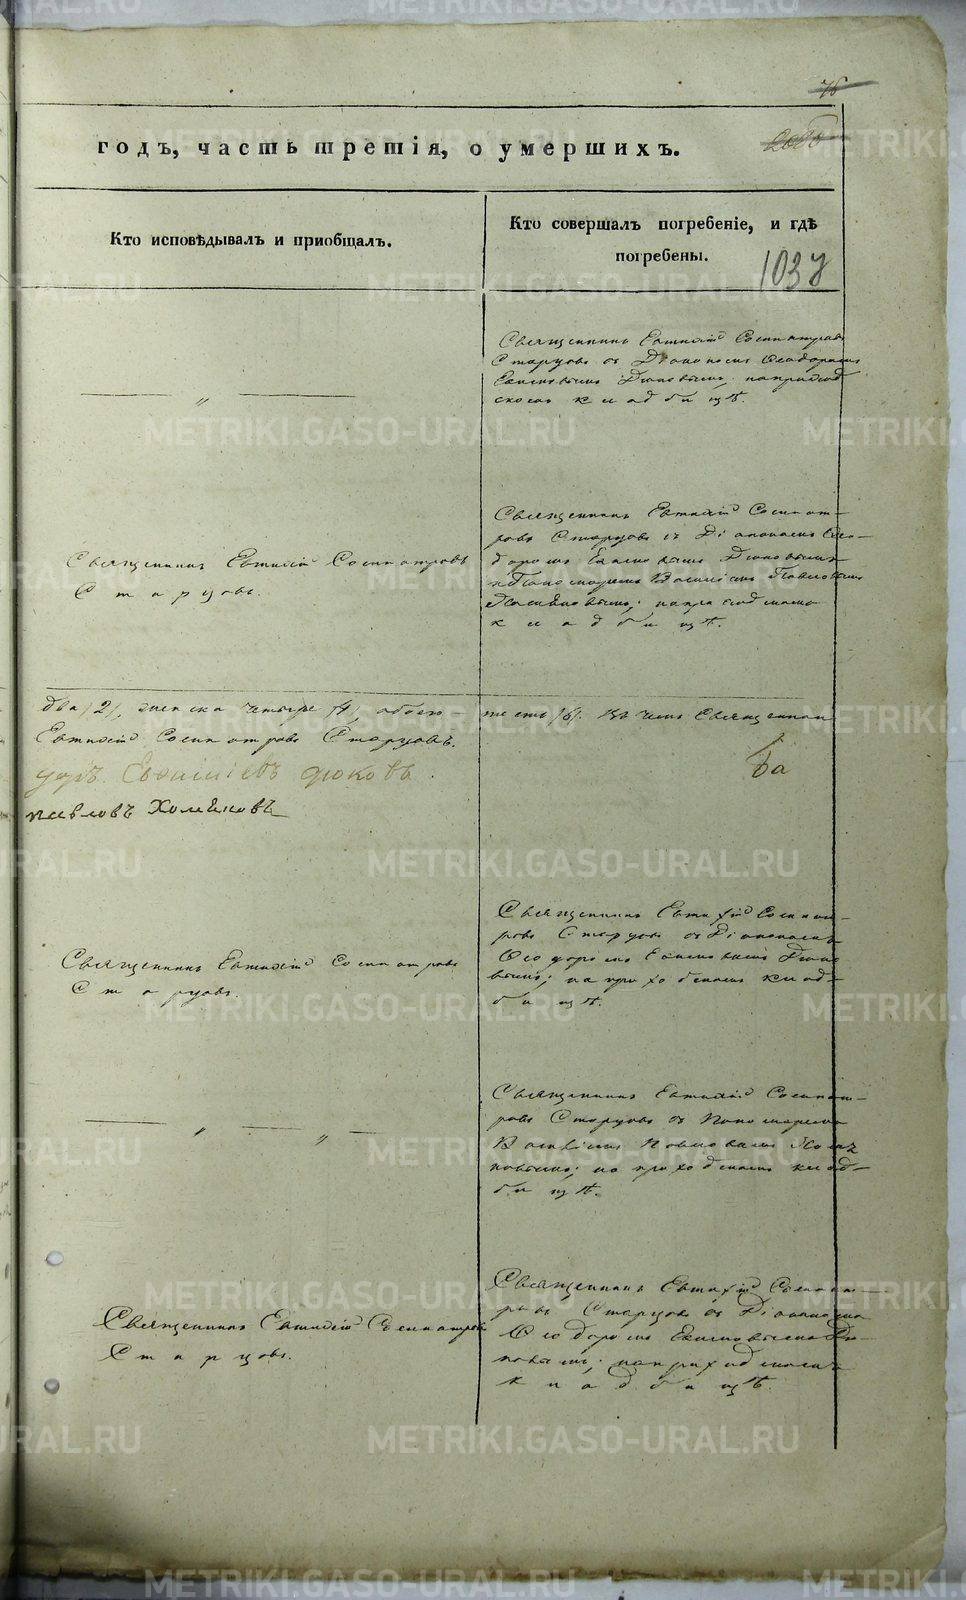 годъ, часть третія, о умершихъ.
Кто исповѣдывалъ и приобщалъ.
Кто совершалъ погребеніе, и гдѣ
погребены.
1037
Священникъ Евтихій Сосипатровъ
Старцовъ съ Діакономъ Ѳеодоромъ
Дюковымъ,
скомъ кладбищѣ.
Священникъ Евтихій Сосипатровъ
Старцовъ.
Священникъ Евтихій Сосипат-
ровъ Старцовъ съ Діакономъ Ѳео-
доромъ Дюковымъ
и Пономаремъ Василіемъ Павловымъ
на приходскомъ
кладбищѣ.
два /2/, женска четыре /4/, обоего
шесть /6/. Въ чемъ Священникъ
Евтихій Сосипатровъ Старцовъ.
доръ Дюковъ.
Павловъ
Священникъ Евтихій Сосипатровъ
Старцовъ.
Священникъ Евтихій Сосипат-
ровъ Старцовъ съ Діакономъ
Ѳеодоромъ Дюко-
вымъ; на приходскомъ клад-
бищѣ.
Священникъ Евтихій Сосипат-
ровъ Старцовъ съ Пономаремъ
Василіемъ Павловымъ
на приходскомъ клад-
бищѣ.
Священникъ Евтихій Сосипатровъ
Старцовъ.
Священникъ Евтихій Сосипат-
ровъ Старцовъ съ Діакономъ
Ѳеодоромъ Дю-
ковымъ; на приходскомъ
кладбищѣ.
METRIKI.GASO-URAL.RU